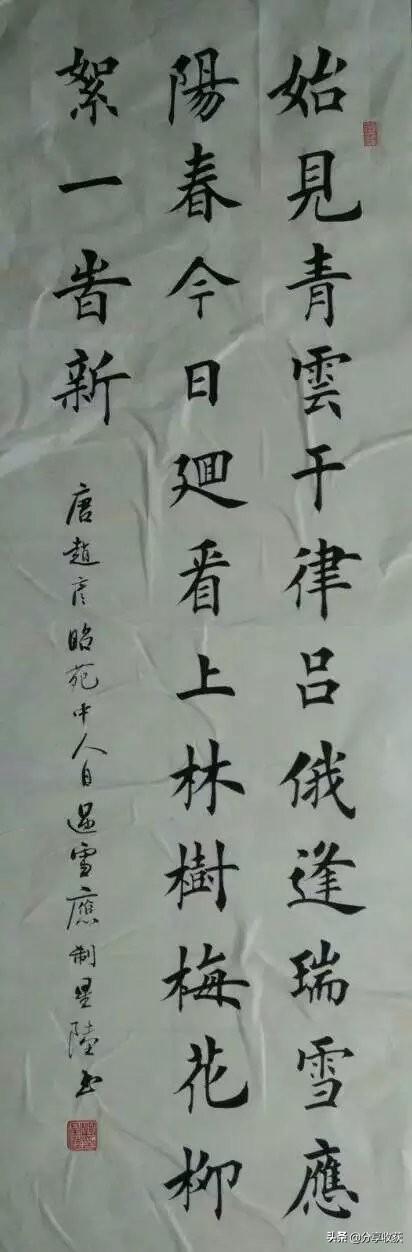 始見青雲干律呂俄逢瑞雪應
陽春今日廻看上林樹梅花柳
絮一旹新
唐趙彦昭苑中人日遇雪應制星陸书
头条 @分享收获